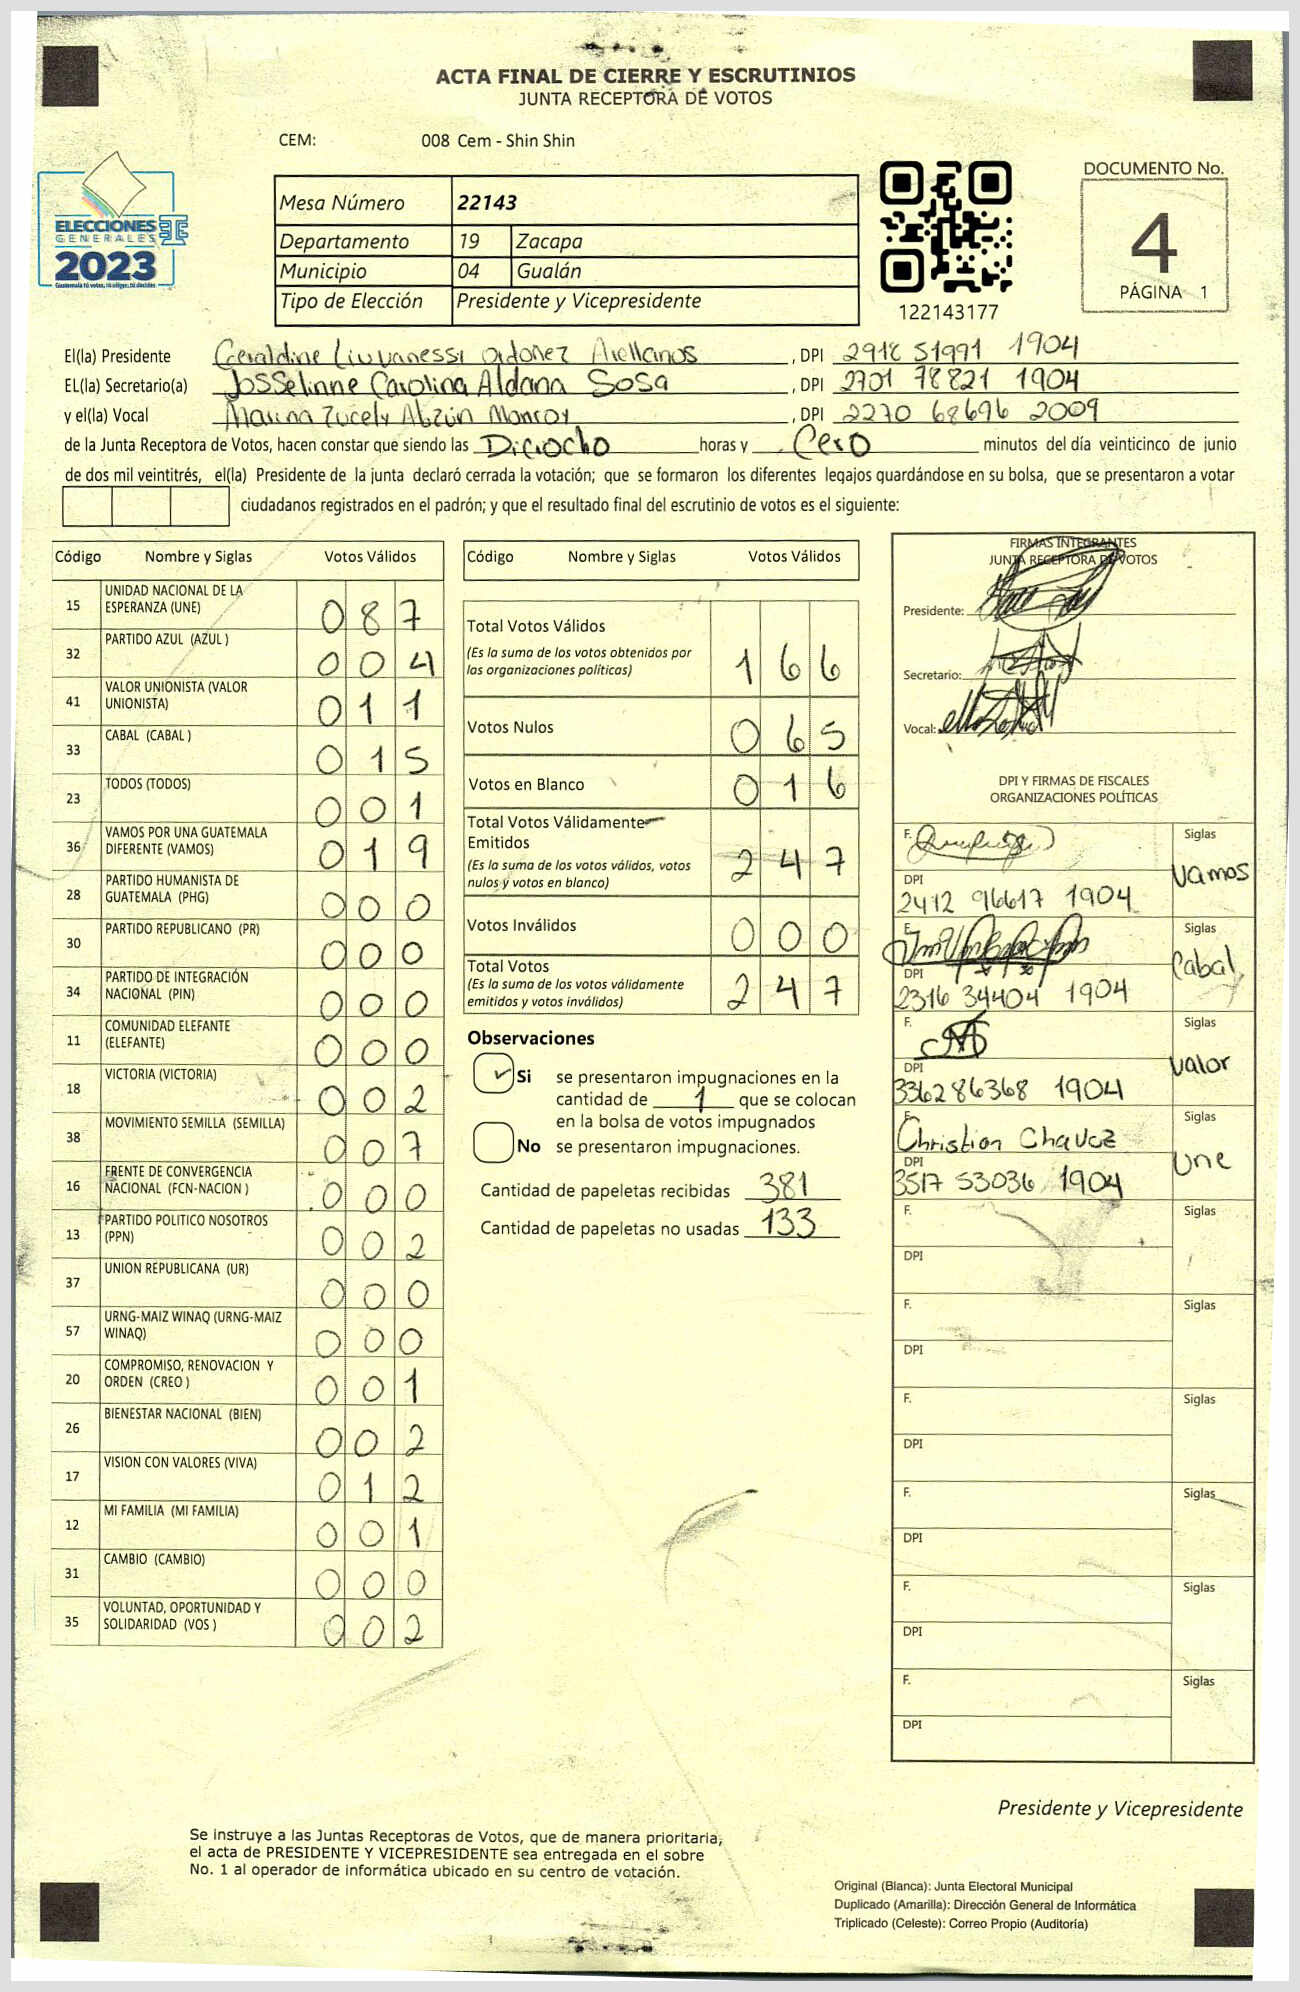 ACTA FINAL DE CIERRE Y ESCRUTINIOS
JUNTA RECEPTORA DE VOTOS
CEM: 008 Cem - Shin Shin
ELECCIONES
GENERALES
2023
Guatemala tú votas, tú eliges, tú decides
Mesa Número 22143
Departamento 19 Zacapa
Municipio 04 Gualán
Tipo de Elección Presidente y Vicepresidente
122143177
DOCUMENTO No.
4
PÁGINA 1
El(la) Presidente Geraldine Ordoñez Arellanos , DPI 2918 51991 1904
EL(la) Secretario(a) Josselinne Carolina Aldana Sosa , DPI 2701 78821 1904
y el(la) Vocal Marina Monroy , DPI 2270 68696 2009
de la Junta Receptora de Votos, hacen constar que siendo las Dieciocho horas y Cero minutos del día veinticinco de junio
de dos mil veintitrés, el(la) Presidente de la junta declaró cerrada la votación; que se formaron los diferentes legajos guardándose en su bolsa, que se presentaron a votar
ciudadanos registrados en el padrón; y que el resultado final del escrutinio de votos es el siguiente:
Código Nombre y Siglas Votos Válidos
15 UNIDAD NACIONAL DE LA ESPERANZA (UNE) 0 8 7
32 PARTIDO AZUL (AZUL ) 0 0 4
41 VALOR UNIONISTA (VALOR UNIONISTA) 0 1 1
33 CABAL (CABAL ) 0 1 5
23 TODOS (TODOS) 0 0 1
36 VAMOS POR UNA GUATEMALA DIFERENTE (VAMOS) 0 1 9
28 PARTIDO HUMANISTA DE GUATEMALA (PHG) 0 0 0
30 PARTIDO REPUBLICANO (PR) 0 0 0
34 PARTIDO DE INTEGRACIÓN NACIONAL (PIN) 0 0 0
11 COMUNIDAD ELEFANTE (ELEFANTE) 0 0 0
18 VICTORIA (VICTORIA) 0 0 2
38 MOVIMIENTO SEMILLA (SEMILLA) 0 0 7
16 FRENTE DE CONVERGENCIA NACIONAL (FCN-NACION ) 0 0 0
13 PARTIDO POLITICO NOSOTROS (PPN) 0 0 2
37 UNION REPUBLICANA (UR) 0 0 0
57 URNG-MAIZ WINAQ (URNG-MAIZ WINAQ) 0 0 0
20 COMPROMISO, RENOVACION Y ORDEN (CREO ) 0 0 1
26 BIENESTAR NACIONAL (BIEN) 0 0 2
17 VISION CON VALORES (VIVA) 0 1 2
12 MI FAMILIA (MI FAMILIA) 0 0 1
31 CAMBIO (CAMBIO) 0 0 0
35 VOLUNTAD, OPORTUNIDAD Y SOLIDARIDAD (VOS ) 0 0 2
Código Nombre y Siglas Votos Válidos
Total Votos Válidos
(Es la suma de los votos obtenidos por
las organizaciones políticas) 1 6 6
Votos Nulos 0 6 5
Votos en Blanco 0 1 6
Total Votos Válidamente
Emitidos
(Es la suma de los votos válidos, votos
nulos y votos en blanco) 2 4 7
Votos Inválidos 0 0 0
Total Votos
(Es la suma de los votos válidamente
emitidos y votos inválidos) 2 4 7
Observaciones
Si se presentaron impugnaciones en la
cantidad de 1 que se colocan
en la bolsa de votos impugnados
No se presentaron impugnaciones.
Cantidad de papeletas recibidas 381
Cantidad de papeletas no usadas 133
FIRMAS INTEGRANTES
JUNTA RECEPTORA DE VOTOS
Presidente:
Secretario:
Vocal:
DPI Y FIRMAS DE FISCALES
ORGANIZACIONES POLÍTICAS
F. Siglas
Vamos
DPI
2412 96617 1904
F. Siglas
Cabal
DPI
2316 34404 1904
F. Siglas
Valor
DPI
3362 86368 1904
F. Siglas
Christian Chavez
Une
DPI
3517 53036 1904
F. Siglas
DPI
F. Siglas
DPI
F. Siglas
DPI
F. Siglas
DPI
F. Siglas
DPI
F. Siglas
DPI
Presidente y Vicepresidente
Se instruye a las Juntas Receptoras de Votos, que de manera prioritaria,
el acta de PRESIDENTE Y VICEPRESIDENTE sea entregada en el sobre
No. 1 al operador de informática ubicado en su centro de votación.
Original (Blanca): Junta Electoral Municipal
Duplicado (Amarilla): Dirección General de Informática
Triplicado (Celeste): Correo Propio (Auditoría)